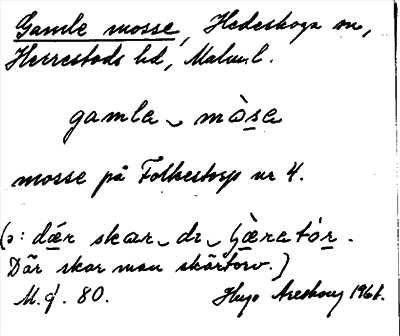 Gamle mosse, Hedeskoga sn,
Herrestads hd, Malm.l.
gamla mòsa
mosse på Folkestorp nr 4.
(ɔ: dǽr skar di tjæretór.
Där skar man skärtorv.)
M.g. 80. Hugo Areskoug 1961.